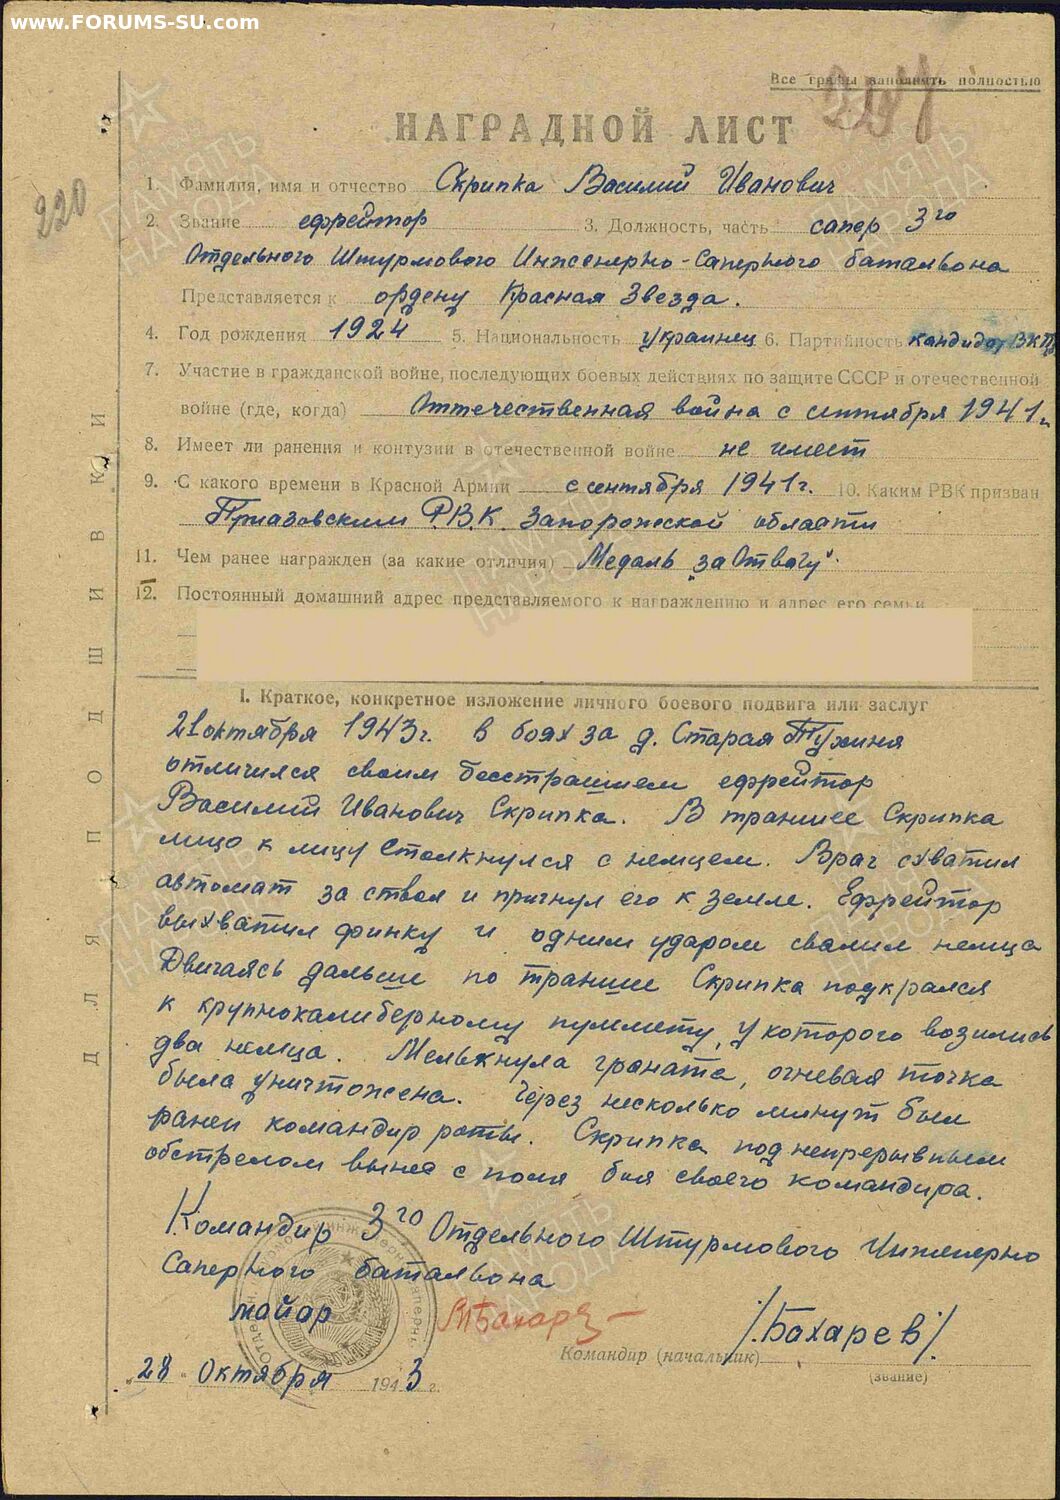 www.FORUMS-SU.com
Все графы заполнять полностью
220
НАГРАДНОЙ ЛИСТ
1. Фамилия, имя и отчество Скрипка Василий Иванович
2. Звание ефрейтор 3. Должность, часть сапер 3го
Отдельного Штурмового Инженерно-Саперного батальона
Представляется к ордену Красная Звезда.
4. Год рождения 1924 5. Национальность украинец 6. Партийность кандидат ВКПб
7. Участие в гражданской войне, последующих боевых действиях по защите СССР и отечественной
войне (где, когда) Оттечественная война с сентября 1941 г.
8. Имеет ли ранения и контузии в отечественной войне не имеет
9. С какого времени в Красной Армии с сентября 1941 г. 10. Каким РВК призван
Приазовским Р.В.К. Запорожской области
11. Чем ранее награжден (за какие отличия) Медаль „за Отвагу".
12. Постоянный домашний адрес представляемого к награждению и адрес его семьи
I. Краткое, конкретное изложение личного боевого подвига или заслуг
21 октября 1943 г. в боях за д. Старая Тухиня
отличился своим бесстрашием ефрейтор
Василий Иванович Скрипка. В траншее Скрипка
лицо к лицу столкнулся с немцем. Враг схватил
автомат за ствол и пригнул его к земле. Ефрейтор
выхватил финку и одним ударом свалил немца
Двигаясь дальше по траншие Скрипка подкрался
к крупнокалиберному пуммету, у которого возились
два немца. Мелькнула граната, огневая точка
была уничтожена. Через несколько минут был
ранен командир роты. Скрипка под непрерывным
обстрелом вынес с поля боя своего командира.
Командир 3го Отдельного Штурмового Инженерно
Саперного батальвона
майор
/.Бахарев/.
Командир (начальник)
(звание)
„28" Октября 1943 г.
ДЛЯ ПОДШИВКИ
ПАМЯТЬ НАРОДА